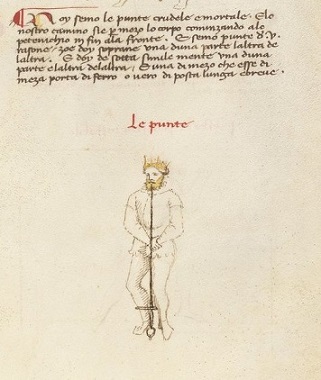 Noy semo le punte crudele e mortale. E lo
nostro camino sie per mezo lo corpo cominzando alo
petenichio in fin ala fronte. E semo punte d. v.
rasone, zoe doy soprane una d'una parte l'altra de
l'altra. E doy de sotta simile mente una d'una
parte e l'altra de l'altra, E una di mezo che esse di
meza porta di ferro overo di posta lunga e breve.
Le punte